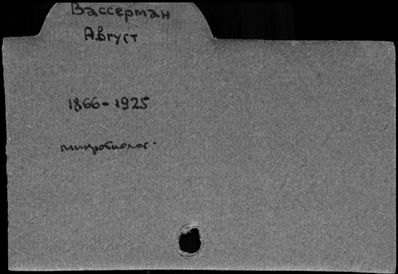 Вассерман
Август
1866-1925
микробиолог.